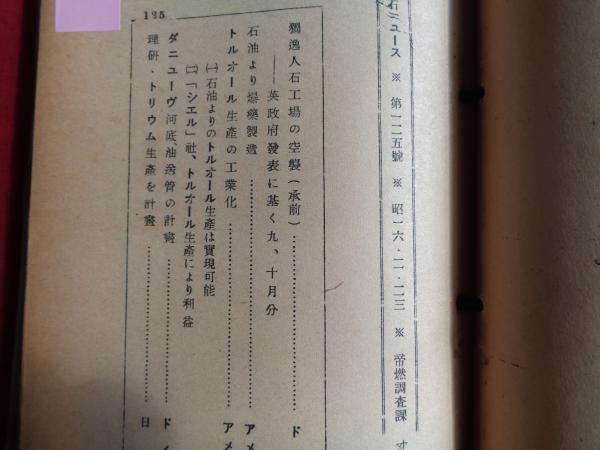 石ニュース ※ 第一二五號 ※ 昭一六・一一・二三 ※ 帝燃調査課
獨逸人石工場の空襲(承前)………………ド
――英政府發表に基く九、十月分
石油より爆藥製造………………アメ
トルオール生產の工業化………………アメ
(一)石油よりのトルオール生產は實現可能
(二)「シエル」社、トルオール生產により利益
ダニューヴ河底、油送管の計畫………………ド
理硏・トリウム生產を計畫………………日
135